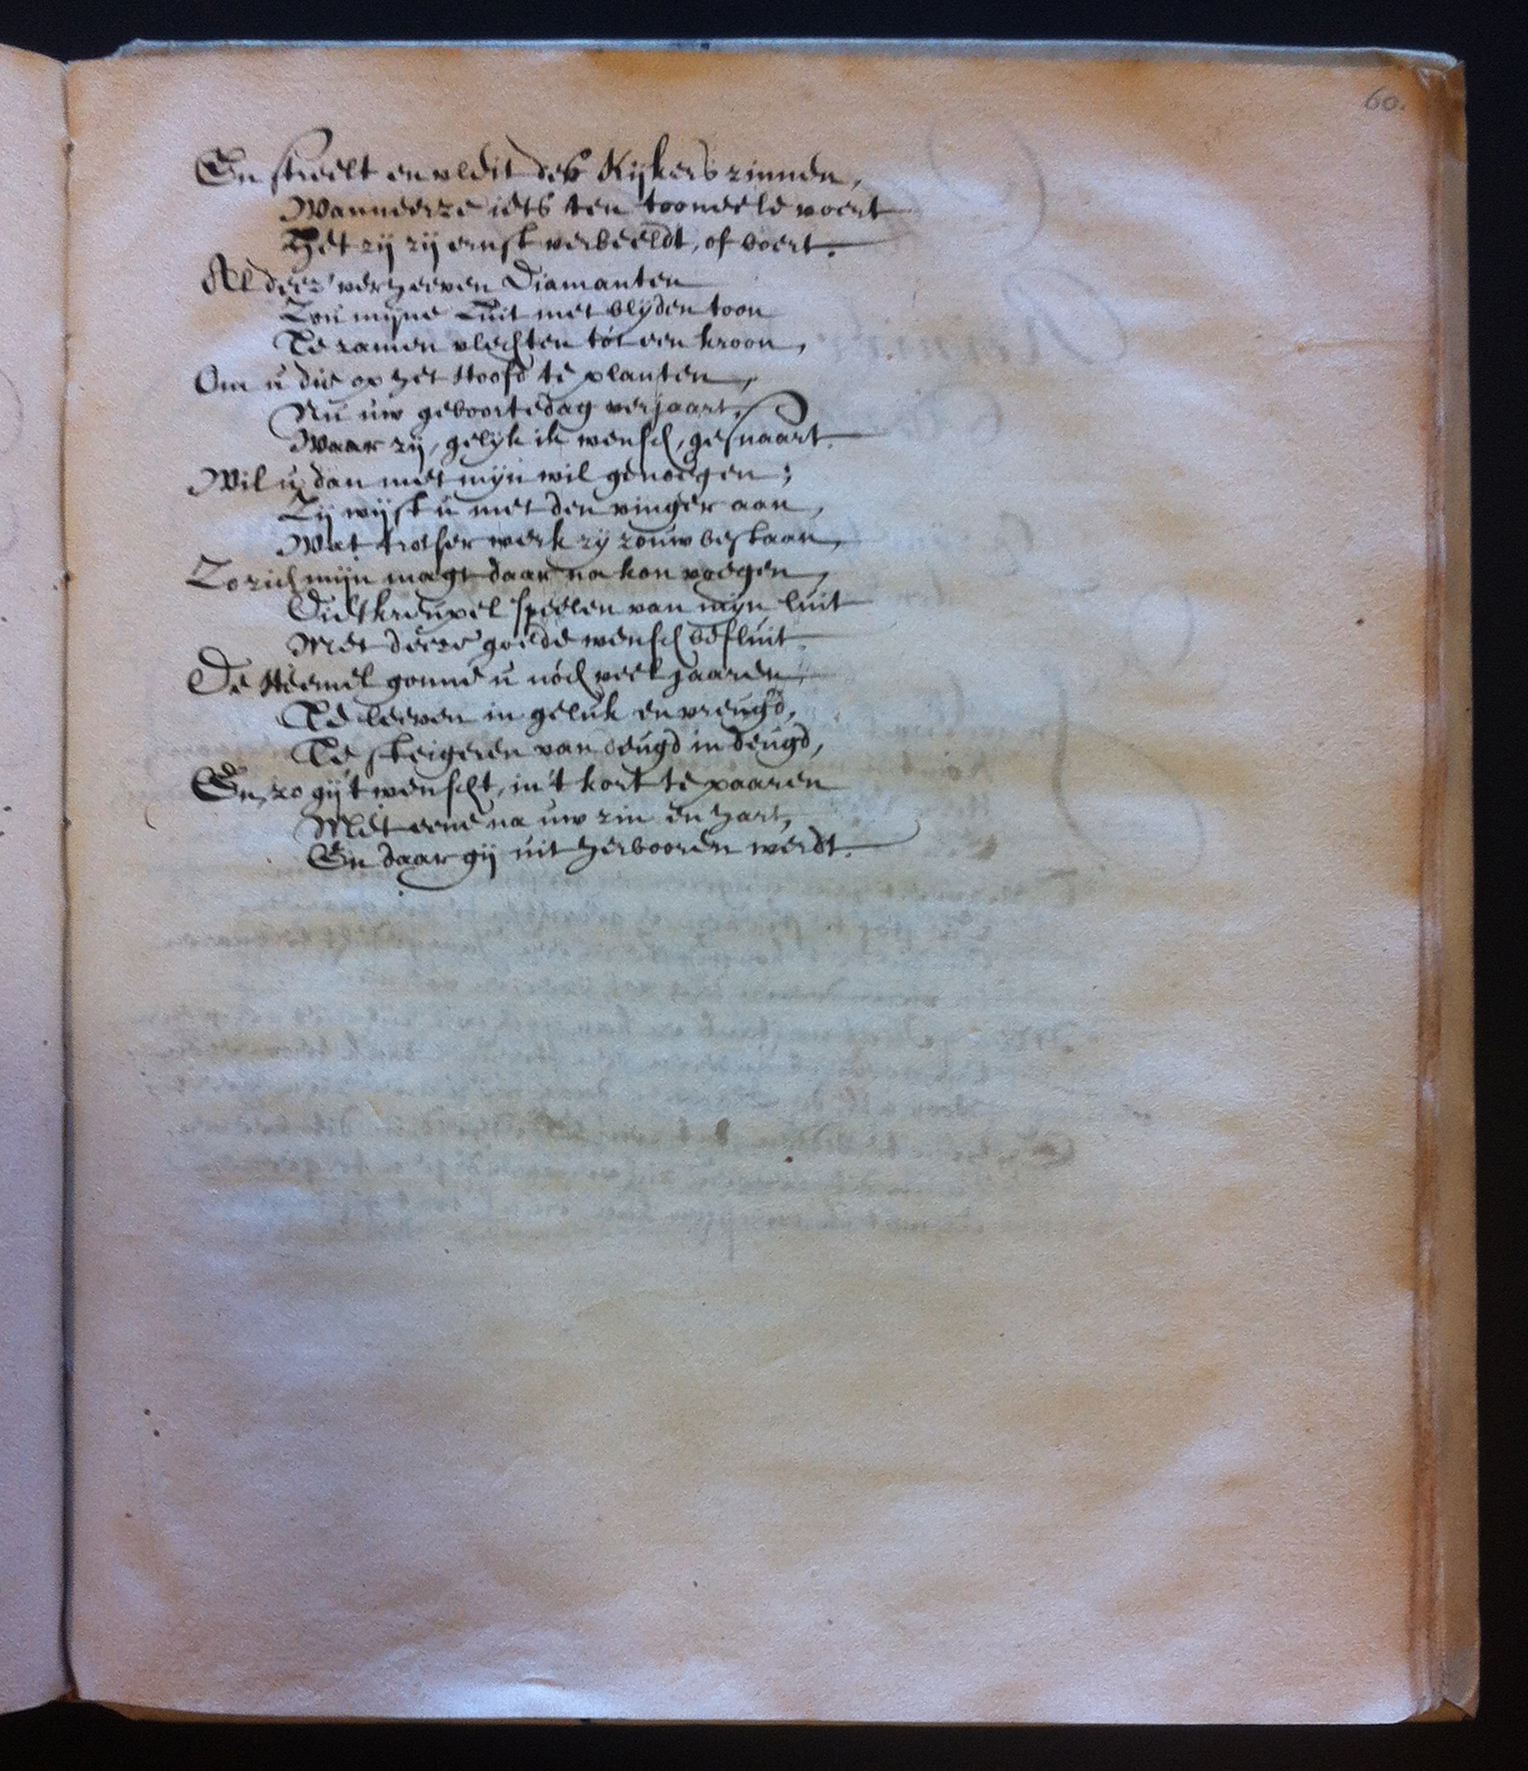 60.
En streelt en vleit des Kijkers zinnen,
Wanneerze iets ten tooneele voert
Het zij zij ernst verbeeldt, of boert.
Al deez' verheeven Diamanten
Zou mijne Luit met blijden toon
Te zamen vlechten tót een kroon,
Om u die op het Hoofd te planten,
Nu uw geboortedag verjaart,
Waar zij, gelijk ik wensch, gesnaart.
Wil u dan met mijn wil genoegen;
Zij wijst u met den vinger aan,
Wat trotser werk zij zouw bestaan,
Zo zich mijn magt daar na kon voegen,
Die 't kreupel speelen van mijn luit
Met deeze goede wensch besluit.
De Hemel gonne u nóch veel jaaren,
Te leeven in geluk en vreugd,
Te steigeren van deugd in deugd,
En, zo gij't wenscht, in 't kort te paaren
Met eene na uw zin en hart,
En daar gij uit herbooren werdt.